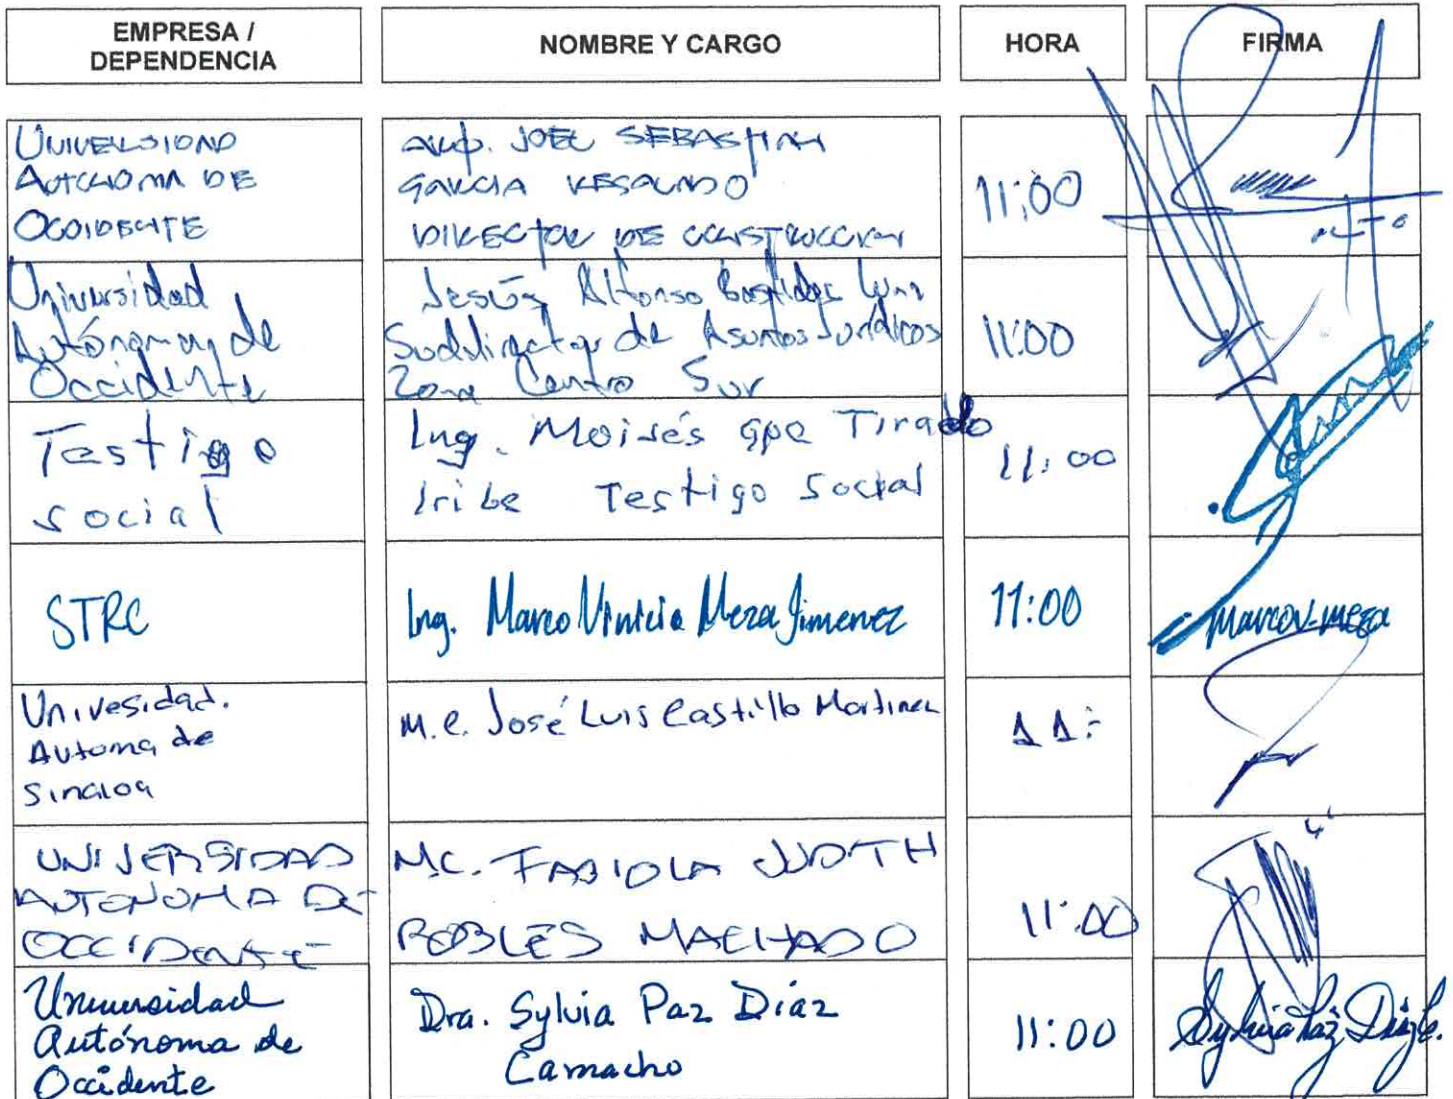 EMPRESA /
DEPENDENCIA
NOMBRE Y CARGO
HORA
FIRMA
UNIVERSIDAD
AUTONOMA DE
OCCIDENTE
ARQ. JOEL SEBASTIAN
GARCIA
DIRECTOR DE CONSTRUCCION
11:00
Universidad
Autónoma de
Occidente
Jesús Alfonso Bastidas
Subdirector de Asuntos Jurídicos
Zona Centro Sur
11:00
Testigo
social
Ing. Moisés Gpe Tirado
Iribe Testigo Social
11:00
STRC
Ing. Marco Vinicio Meza Jimenez
11:00
Marco V. Meza
Univesidad.
Automa de
Sinaloa
M.C. José Luis Castillo Martinez
11:
UNIVERSIDAD
AUTONOMA DE
OCCIDENTE
MC. FABIOLA JUDITH
ROBLES MACHADO
11:00
Universidad
Autónoma de
Occidente
Dra. Sylvia Paz Díaz
Camacho
11:00
Sylvia Paz Díaz C.